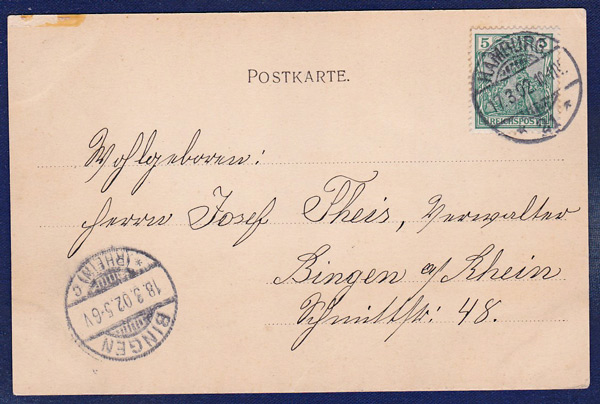 POSTKARTE.
5
REICHSPOST
HAMBURG
17.3.02.10-11
Wohlgeboren:
Herrn Josef Theis, Verwalter
Bingen a/Rhein
Schmittstr: 48.
BINGEN
18.3.02.5-6V
* (RHEIN) c